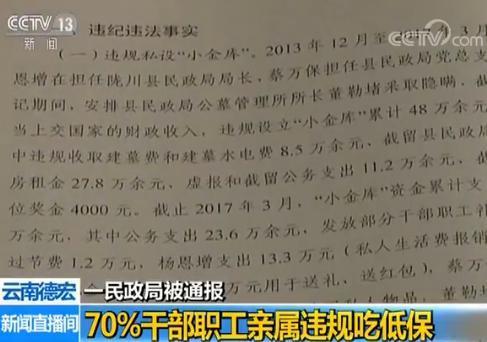 CCTV 13
新闻
CCTV.com
违纪违法事实
(一)违规私设“小金库”。2013年12月至
3月
恩增在担任陇川县民政局局长、蔡万保担任县民政局党总支
记期间，安排县民政局公墓管理所所长董勒堵采取隐瞒、截
当上交国家的财政收入，违规设立“小金库”累计48万余元
中违规收取建墓费和建墓水电费8.5万余元、截留县民政
房租金27.8万余元，虚报和截留公务支出11.2万余元、截
位奖金4000元。截止2017年3月，“小金库”资金累计支
万余元，其中公务支出23.6万余元，发放部分干部职工补
过节费1.2万元，杨恩增支出13.3万元(私人生活费报销
万元用于送礼、送红包)，蔡万
云南德宏
一民政局被通报
新闻直播间
70%干部职工亲属违规吃低保